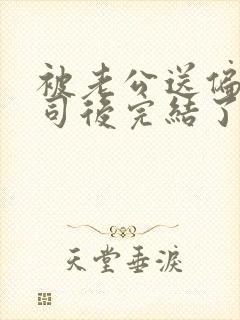 被老公送偏
司後完結了
天堂垂淚